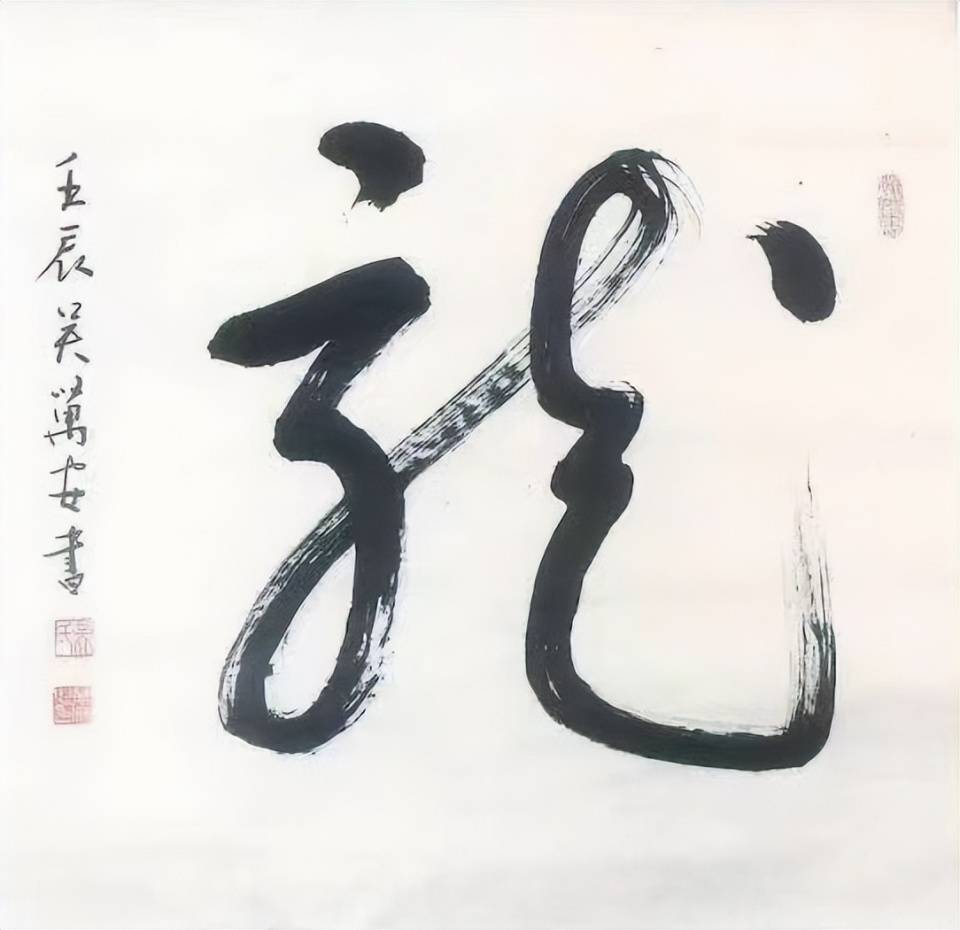 龍
壬辰吴萬安書